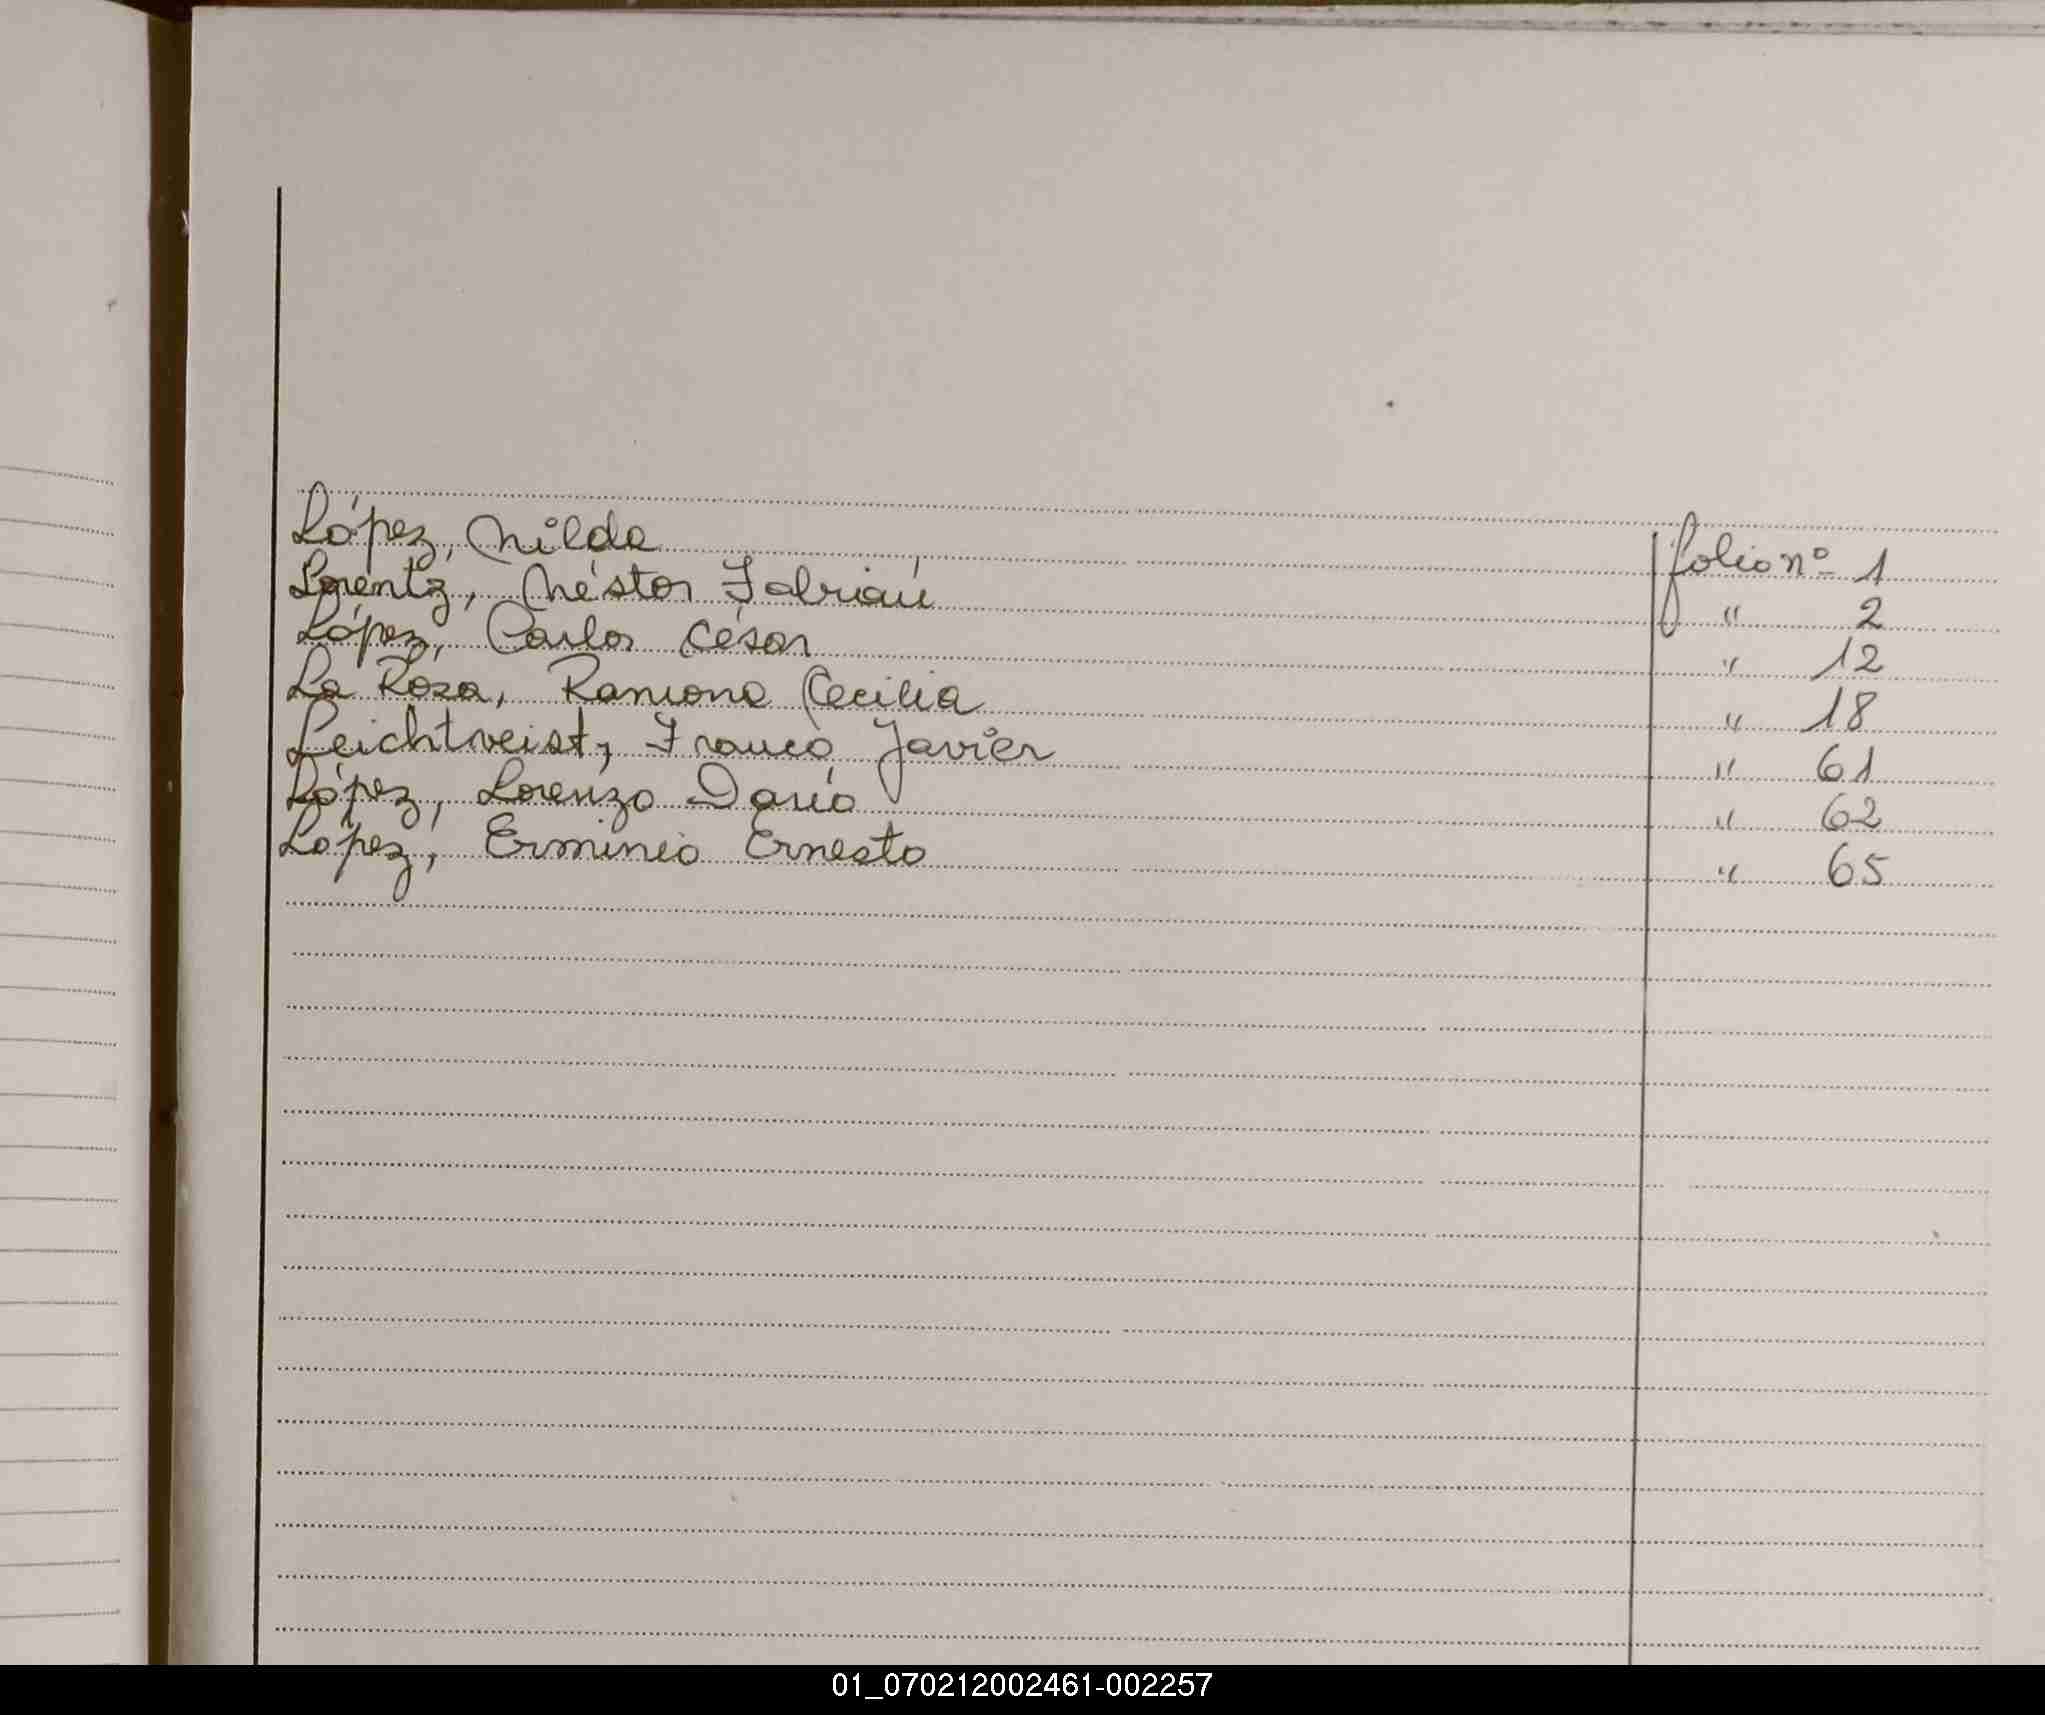 López, Nilda folio nº 1
Lorentz, Néstor Fabián " 2
López, Carlos César " 12
La Rosa, Ramona Cecilia " 18
Leichtweist, Franco Javier " 61
López, Lorenzo Darío " 62
López, Erminio Ernesto " 65
01_070212002461-002257